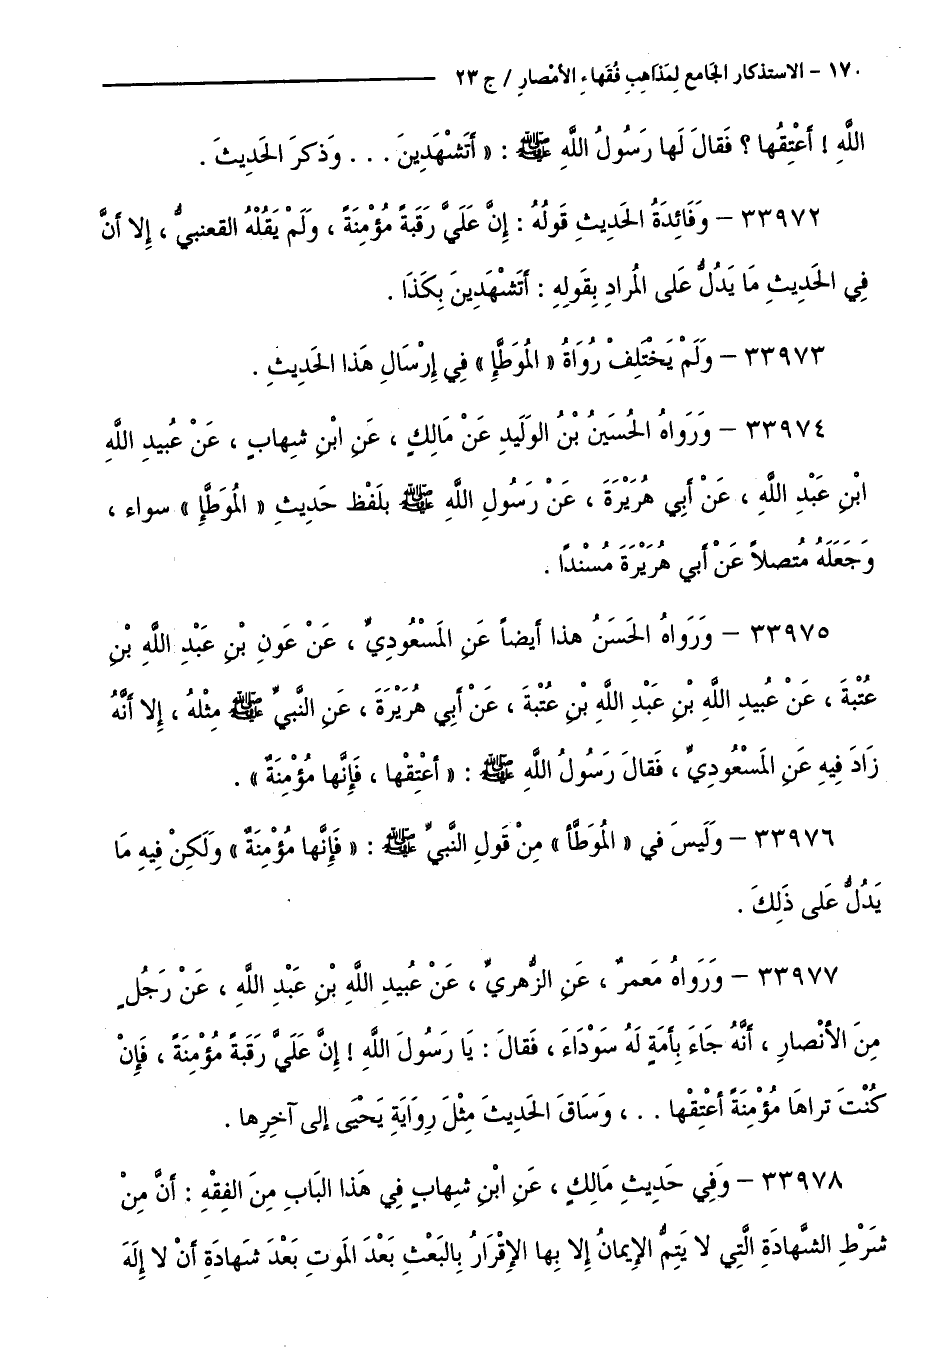 ١٧٠ - الاستذكار الجامع لِمَذَاهِبِ فُقَهاءِ الأمْصارِ / ج ٢٣
اللَّهِ ! أعْتِقُها ؟ فَقالَ لَها رَسُولُ اللَّهِ ﷺ : « أتَشْهَدِينَ . . . وَذكرَ الحَدِيثَ .
٣٣٩٧٢ – وَفَائِدَةُ الحَدِيثِ قَولُهُ : إِنَّ عَلَيَّ رَقَبَةً مُؤْمِنَةً ، وَلَمْ يَقُلْهُ القعنبيُّ ، إِلا أنَّ
فِي الحَدِيثِ مَا يَدُلُّ عَلى المُرادِ بِقَولِهِ : أتَشْهَدِينَ بِكَذَا .
٣٣٩٧٣ – وَلَمْ يَخْتَلِفْ رُوَاةُ « المُوَطَّإِ » فِي إِرْسَالِ هَذا الحَدِيثِ .
٣٣٩٧٤ – وَرَواهُ الحُسَينُ بْنُ الوَلَيدِ عَنْ مَالِكٍ ، عَنِ ابْنِ شِهابٍ ، عَنْ عُبيدِ اللَّهِ
ابْنِ عَبْدِ اللَّهِ ، عَنْ أبِي هُرَيْرَةَ ، عَنْ رَسُولِ اللَّهِ ﷺ بلَفْظِ حَديثِ « المُوَطَّإِ » سواء ،
وَجَعَلَهُ مُتصلاً عَنْ أبي هُرَيْرَةَ مُسْنداً .
٣٣٩٧٥ – وَرَواهُ الحَسَنُ هذا أيضاً عَنِ المَسْعُودِيِّ ، عَنْ عَونِ بْنِ عَبْدِ اللَّهِ بْنِ
عُتْبَةَ ، عَنْ عُبيدِ اللَّهِ بْنِ عَبْدِ اللَّهِ بْنِ عتْبَةَ ، عَنْ أبِي هُرَيْرَةَ ، عَنِ النَّبيِّ ﷺ مِثْلهُ ، إِلا أنَّهُ
زَادَ فِيهِ عَنِ المَسْعُودِيِّ ، فَقالَ رَسُولُ اللَّهِ ﷺ : « أعتِقْها ، فَإِنَّها مُؤْمِنَةٌ » .
٣٣٩٧٦ – وَلَيسَ في « المُوَطَّأ » مِنْ قَولِ النَّبيِّ ﷺ : « فَإِنَّها مُؤْمِنَةٌ » ولَكِنْ فِيهِ مَا
يَدُلُّ عَلى ذَلِكَ .
٣٣٩٧٧ – وَرَوَاهُ مَعمرٌ ، عَنِ الزُّهريِّ ، عَنْ عُبيدِ اللَّهِ بْنِ عَبْدِ اللَّهِ ، عَنْ رَجُلٍ
مِنَ الأنْصارِ ، أنَّهُ جَاءَ بِأمَةٍ لَهُ سَوْدَاءَ ، فَقالَ : يَا رَسُولَ اللَّهِ ! إِنَّ عَلَيَّ رَقَبَةً مُؤْمِنَةً ، فَإِنْ
كُنْتَ تراهَا مُؤْمِنَةً أعْتِقْها . . ، وَسَاقَ الحَدِيثَ مِثْلَ رِوَايَةِ يَحْيَى إِلى آخِرِها .
٣٣٩٧٨ – وَفِي حَدِيثِ مَالِكٍ ، عَنِ ابْنِ شِهابٍ فِي هَذا البَابِ مِنَ الفِقْهِ : أنَّ مِنْ
شَرْطِ الشَّهادَةِ الَّتِي لا يَتِمُّ الإِيمانُ إِلا بِها الإِقْرَارُ بِالبَعْثِ بَعْدَ المَوتِ بَعْدَ شَهادَةِ أنْ لا إِلَهَ